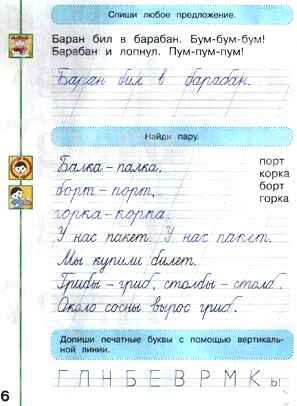 Спиши любое предложение.
Баран бил в барабан. Бум-бум-бум!
Барабан и лопнул. Пум-пум-пум!
Баран бил в барабан.
Найди пару.
Балка – палка,
борт – порт,
горка – корка.
У нас пакет. У нас пакет.
Мы купили билет.
Грибы – гриб, столбы – столб.
Около сосны вырос гриб.
порт
корка
борт
горка
Допиши печатные буквы с помощью вертикаль-
ной линии.
Г П Н Б Е В Р М К Ы
6